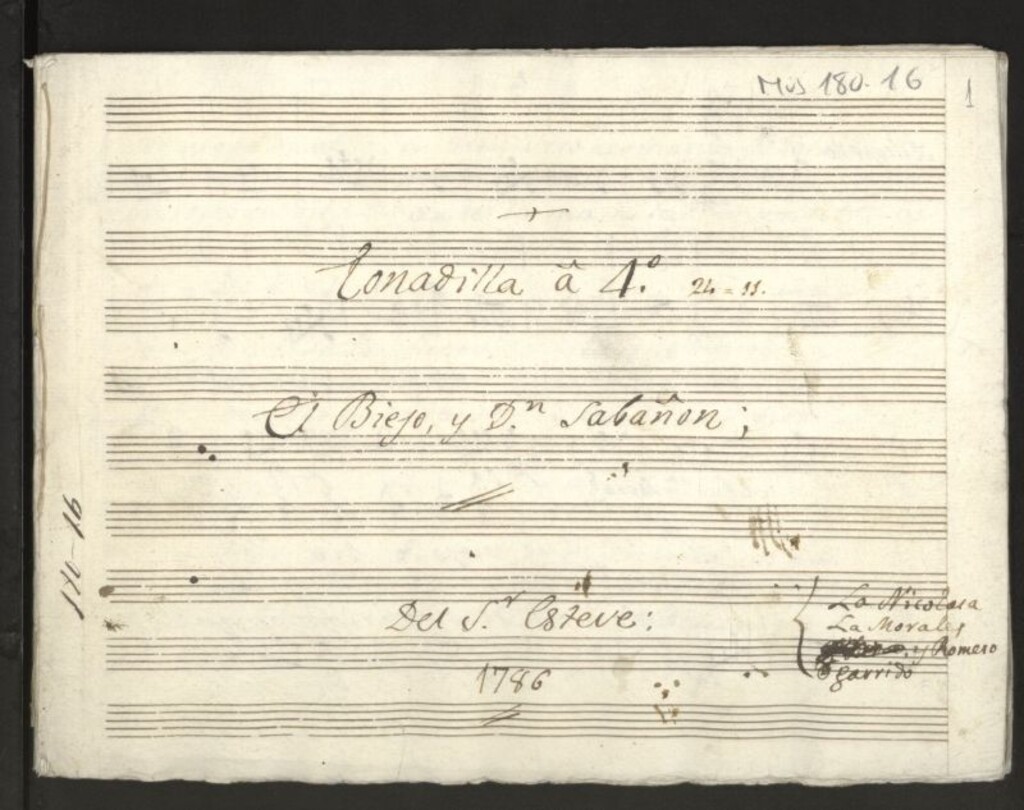 Mus 180-16
1
Tonadilla â 4.º 24=11.
El Biejo, y D.ⁿ Sabañon;
Del S.ʳ Esteve:
1786
La Nicolasa
La Morales
y Romero
garrido